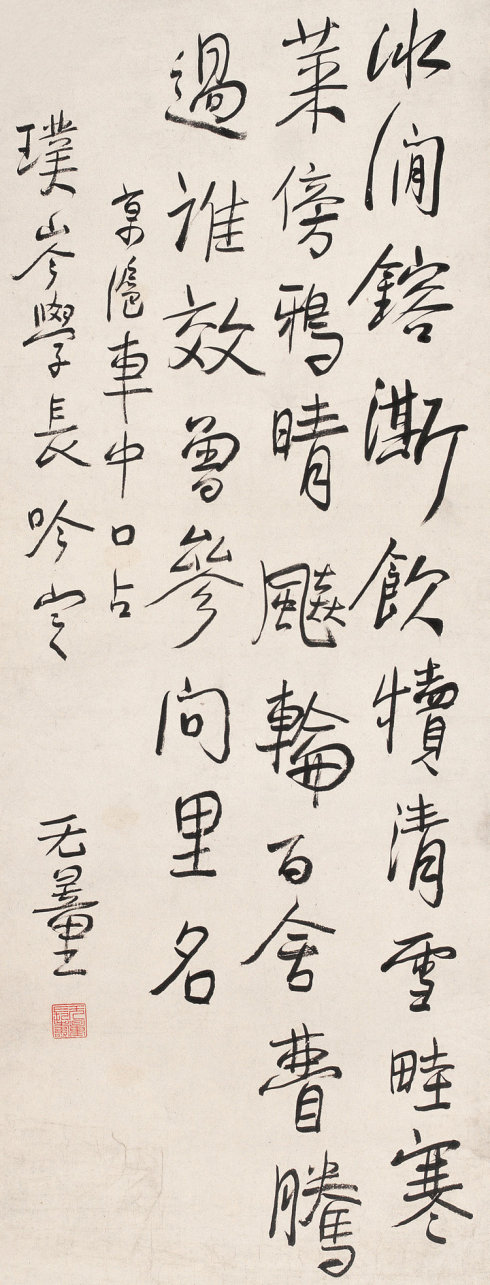 冰涧鎔澌飲犢清雪畦寒
菜傍鴉晴飇輪百舍瞢騰
過誰效曾參問里名
京滬車中口占
璞岑學長吟定
无量